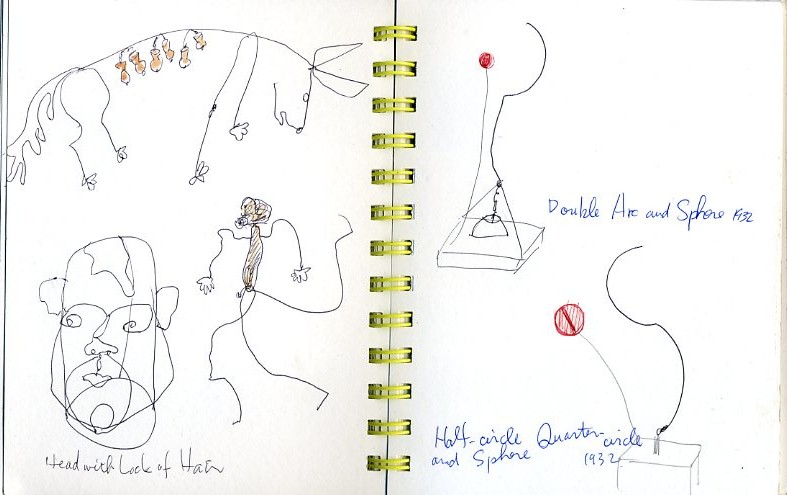 Head with Lock of Hair
Double Arc and Sphere 1932
Half-circle Quarter-circle
and Sphere 1932